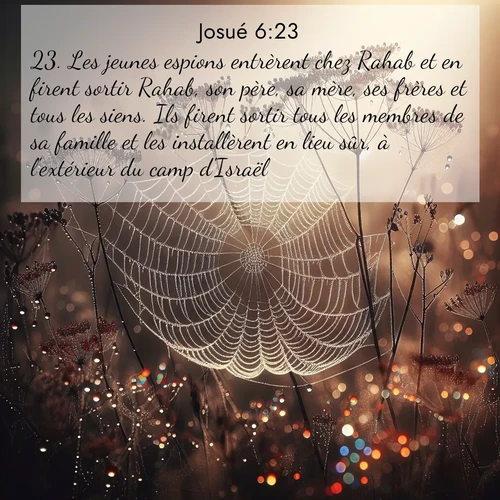 Josué 6:23
23. Les jeunes espions entrèrent chez Rahab et en
firent sortir Rahab, son père, sa mère, ses frères et
tous les siens. Ils firent sortir tous les membres de
sa famille et les installèrent en lieu sûr, à
l'extérieur du camp d'Israël